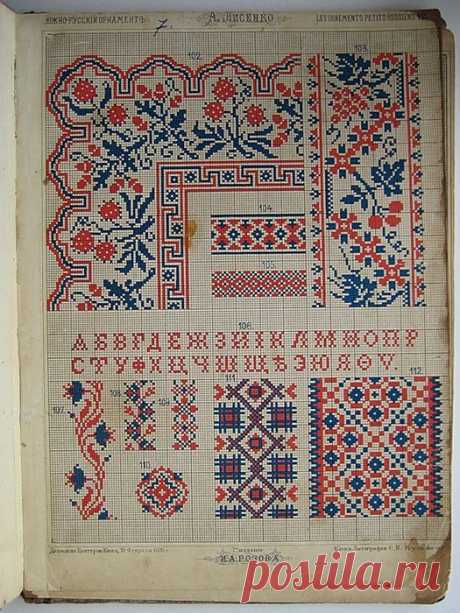 ЮЖНО-РУССКІЙ ОРНАМЕНТЪ
7.
А. ЛИСЕНКО
LES ORNEMENTS PETITS RUSSIENS
102.
103.
104.
105.
106.
АБВГДЕЖЗИІКЛМНОПР
СТУФХЦЧШЩѢЭЮЯѲѴ.
107.
108.
109.
110.
111.
112.
Дозволено Цензурою Кіевъ,
Изданіе
И.А.РОЗОВА
Литографія С. В.
postila.ru